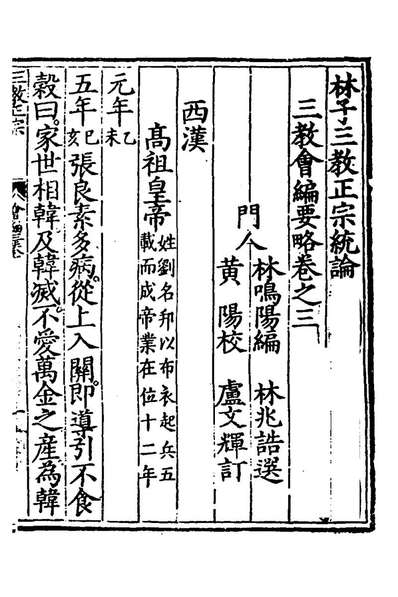 林子三教正宗統論
三教會編要略卷之三
門人 林鳴陽編 林兆誥選
黃陽校 盧文輝訂
西漢
高祖皇帝 姓劉名邦以布衣起兵五
載而成帝業在位十二年
元年 乙未
五年 己亥 張良素多病從上入關即導引不食
穀曰家世相韓及韓滅不愛萬金之産為韓
三教正宗